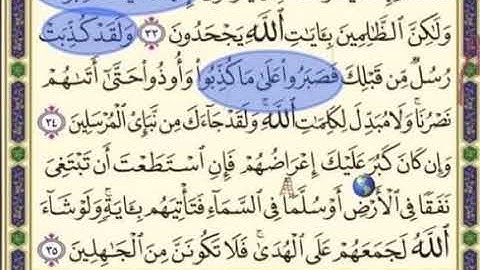 وَلَٰكِنَّ ٱلظَّٰلِمِينَ بِـَٔايَٰتِ ٱللَّهِ يَجْحَدُونَ ٣٣ وَلَقَدْ كُذِّبَتْ
رُسُلٌ مِّن قَبْلِكَ فَصَبَرُوا۟ عَلَىٰ مَا كُذِّبُوا۟ وَأُوذُوا۟ حَتَّىٰٓ أَتَىٰهُمْ
نَصْرُنَا ۚ وَلَا مُبَدِّلَ لِكَلِمَٰتِ ٱللَّهِ ۚ وَلَقَدْ جَآءَكَ مِن نَّبَإِى۟ ٱلْمُرْسَلِينَ ٣٤
وَإِن كَانَ كَبُرَ عَلَيْكَ إِعْرَاضُهُمْ فَإِنِ ٱسْتَطَعْتَ أَن تَبْتَغِىَ
نَفَقًا فِى ٱلْأَرْضِ أَوْ سُلَّمًا فِى ٱلسَّمَآءِ فَتَأْتِيَهُم بِـَٔايَةٍ ۚ وَلَوْ شَآءَ
ٱللَّهُ لَجَمَعَهُمْ عَلَى ٱلْهُدَىٰ ۚ فَلَا تَكُونَنَّ مِنَ ٱلْجَٰهِلِينَ ٣٥